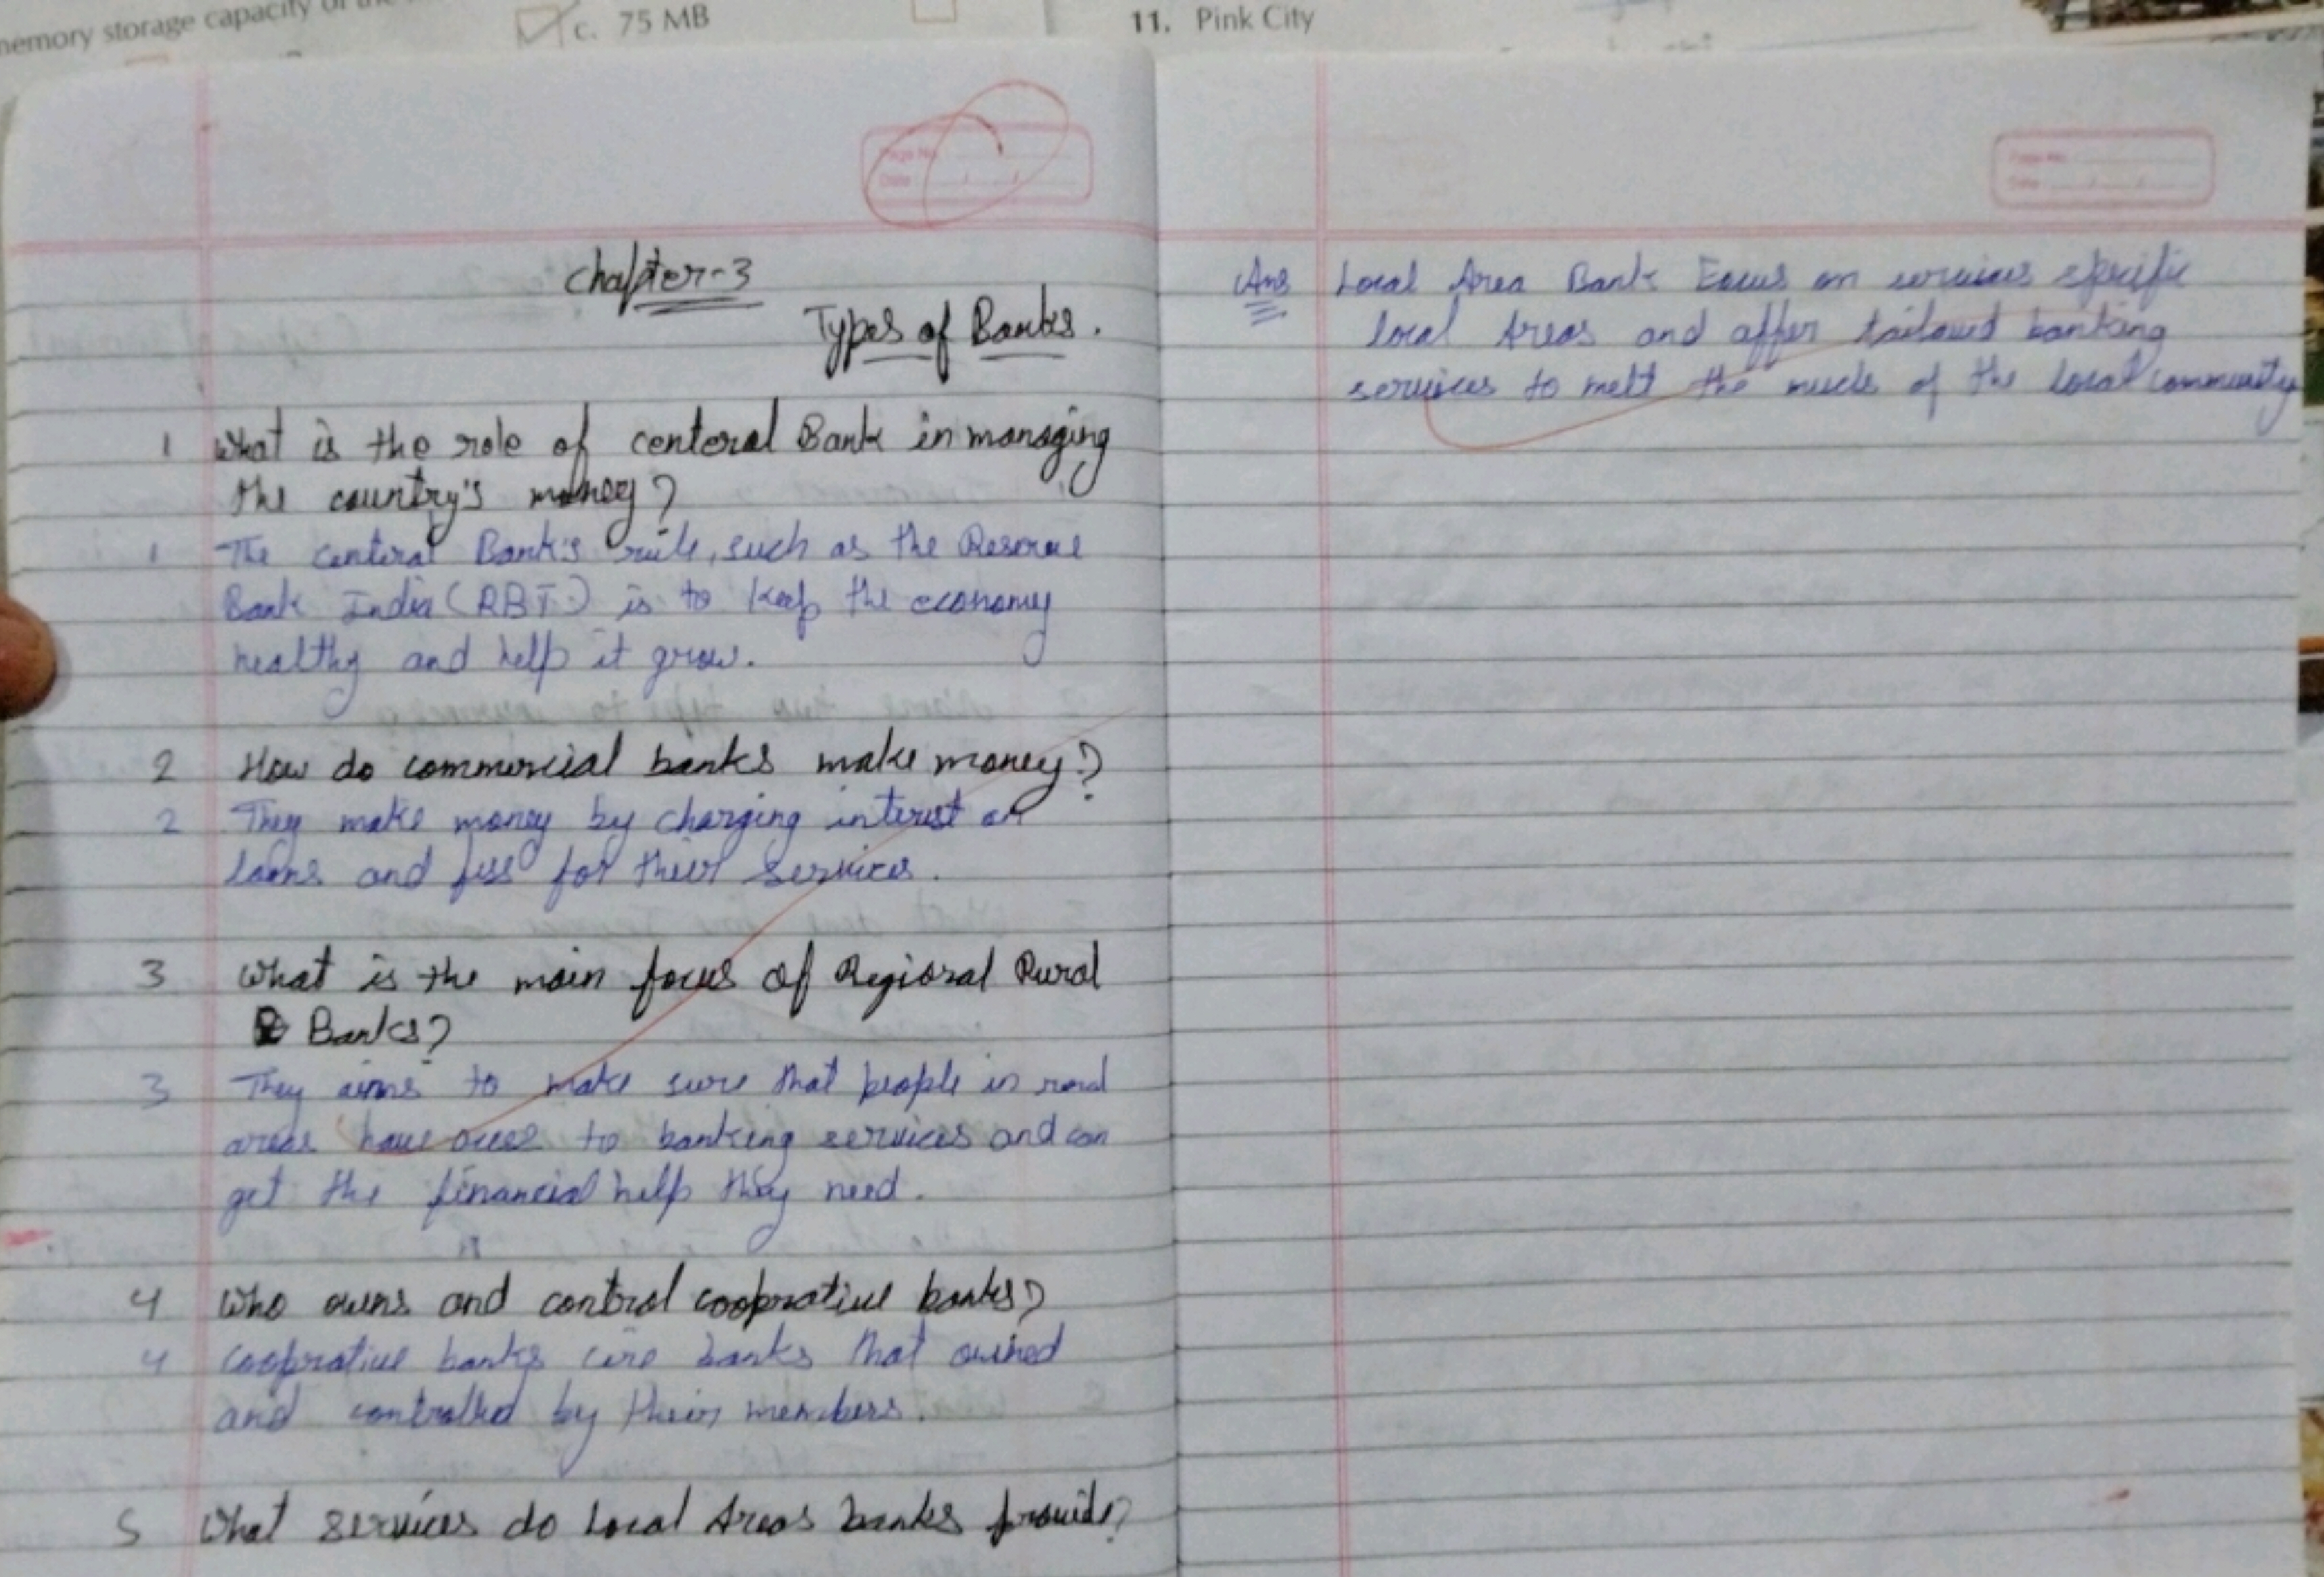 memory storage capacity of the
c. 75 MB
11. Pink City
Page No.
Date
Page No.
Date
Chapter-3
Types of Banks.
1 What is the role of centeral Bank in managing
the country's money?
1 The centeral Bank's rule, such as the Reserve
Bank India (RBI) is to keep the economy
healthy and help it grow.
2 How do commercial banks make money?
2 They make money by charging interest on
loans and fess for their services.
3 What is the main focus of Regional Rural
Banks?
3 They aims to make sure that people in rural
areas have acces to banking services and can
get the financial help they need.
4 Who owns and control cooprative banks?
4 Cooprative banks are banks that owned
and controlled by their members.
5 What services do Local Areas banks provide?
Ans Local Area Bank Focus on specific
local Areas and offer tailoued banking
services to mett the of the local community